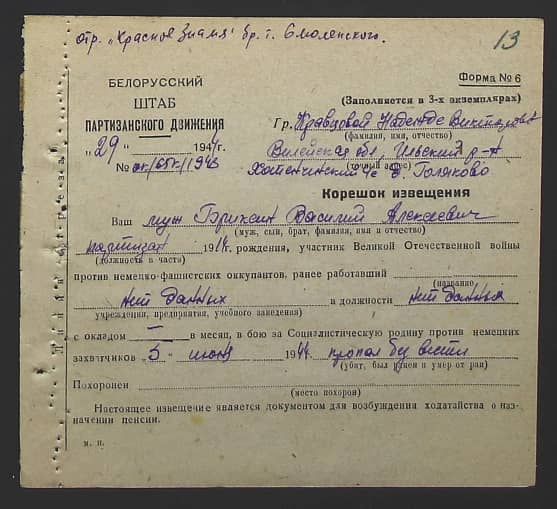 отр. „Красное Знамя" бр. т. Смоленского.
13
БЕЛОРУССКИЙ
ШТАБ
ПАРТИЗАНСКОГО ДВИЖЕНИЯ
„29" 194 г.
№
Форма № 6
(Заполняется в 3-х экземплярах)
Гр. Кравцовой Надежде Викторовне
(фамилия, имя, отчество)
Вилейская обл, Ильский р-н
(точный адрес)
Хотенчинский с/с д.
Корешок извещения
Ваш муж Василий Алексеевич
(муж, сын, брат, фамилия, имя и отчество)
партизан 191 г. рождения, участник Великой Отечественной войны
(должность в части)
против немецко-фашистских оккупантов, ранее работавший
(название
нет данных в должности нет данных
учреждения, предприятия, учебного заведения)
с окладом — в месяц, в бою за Социалистическую родину против немецких
захватчиков „5" июня 1944 пропал без вести
(убит, был ранен и умер от ран)
Похоронен
(место похорон)
Настоящее извещение является документом для возбуждения ходатайства о наз-
начении пенсии.
м. п.